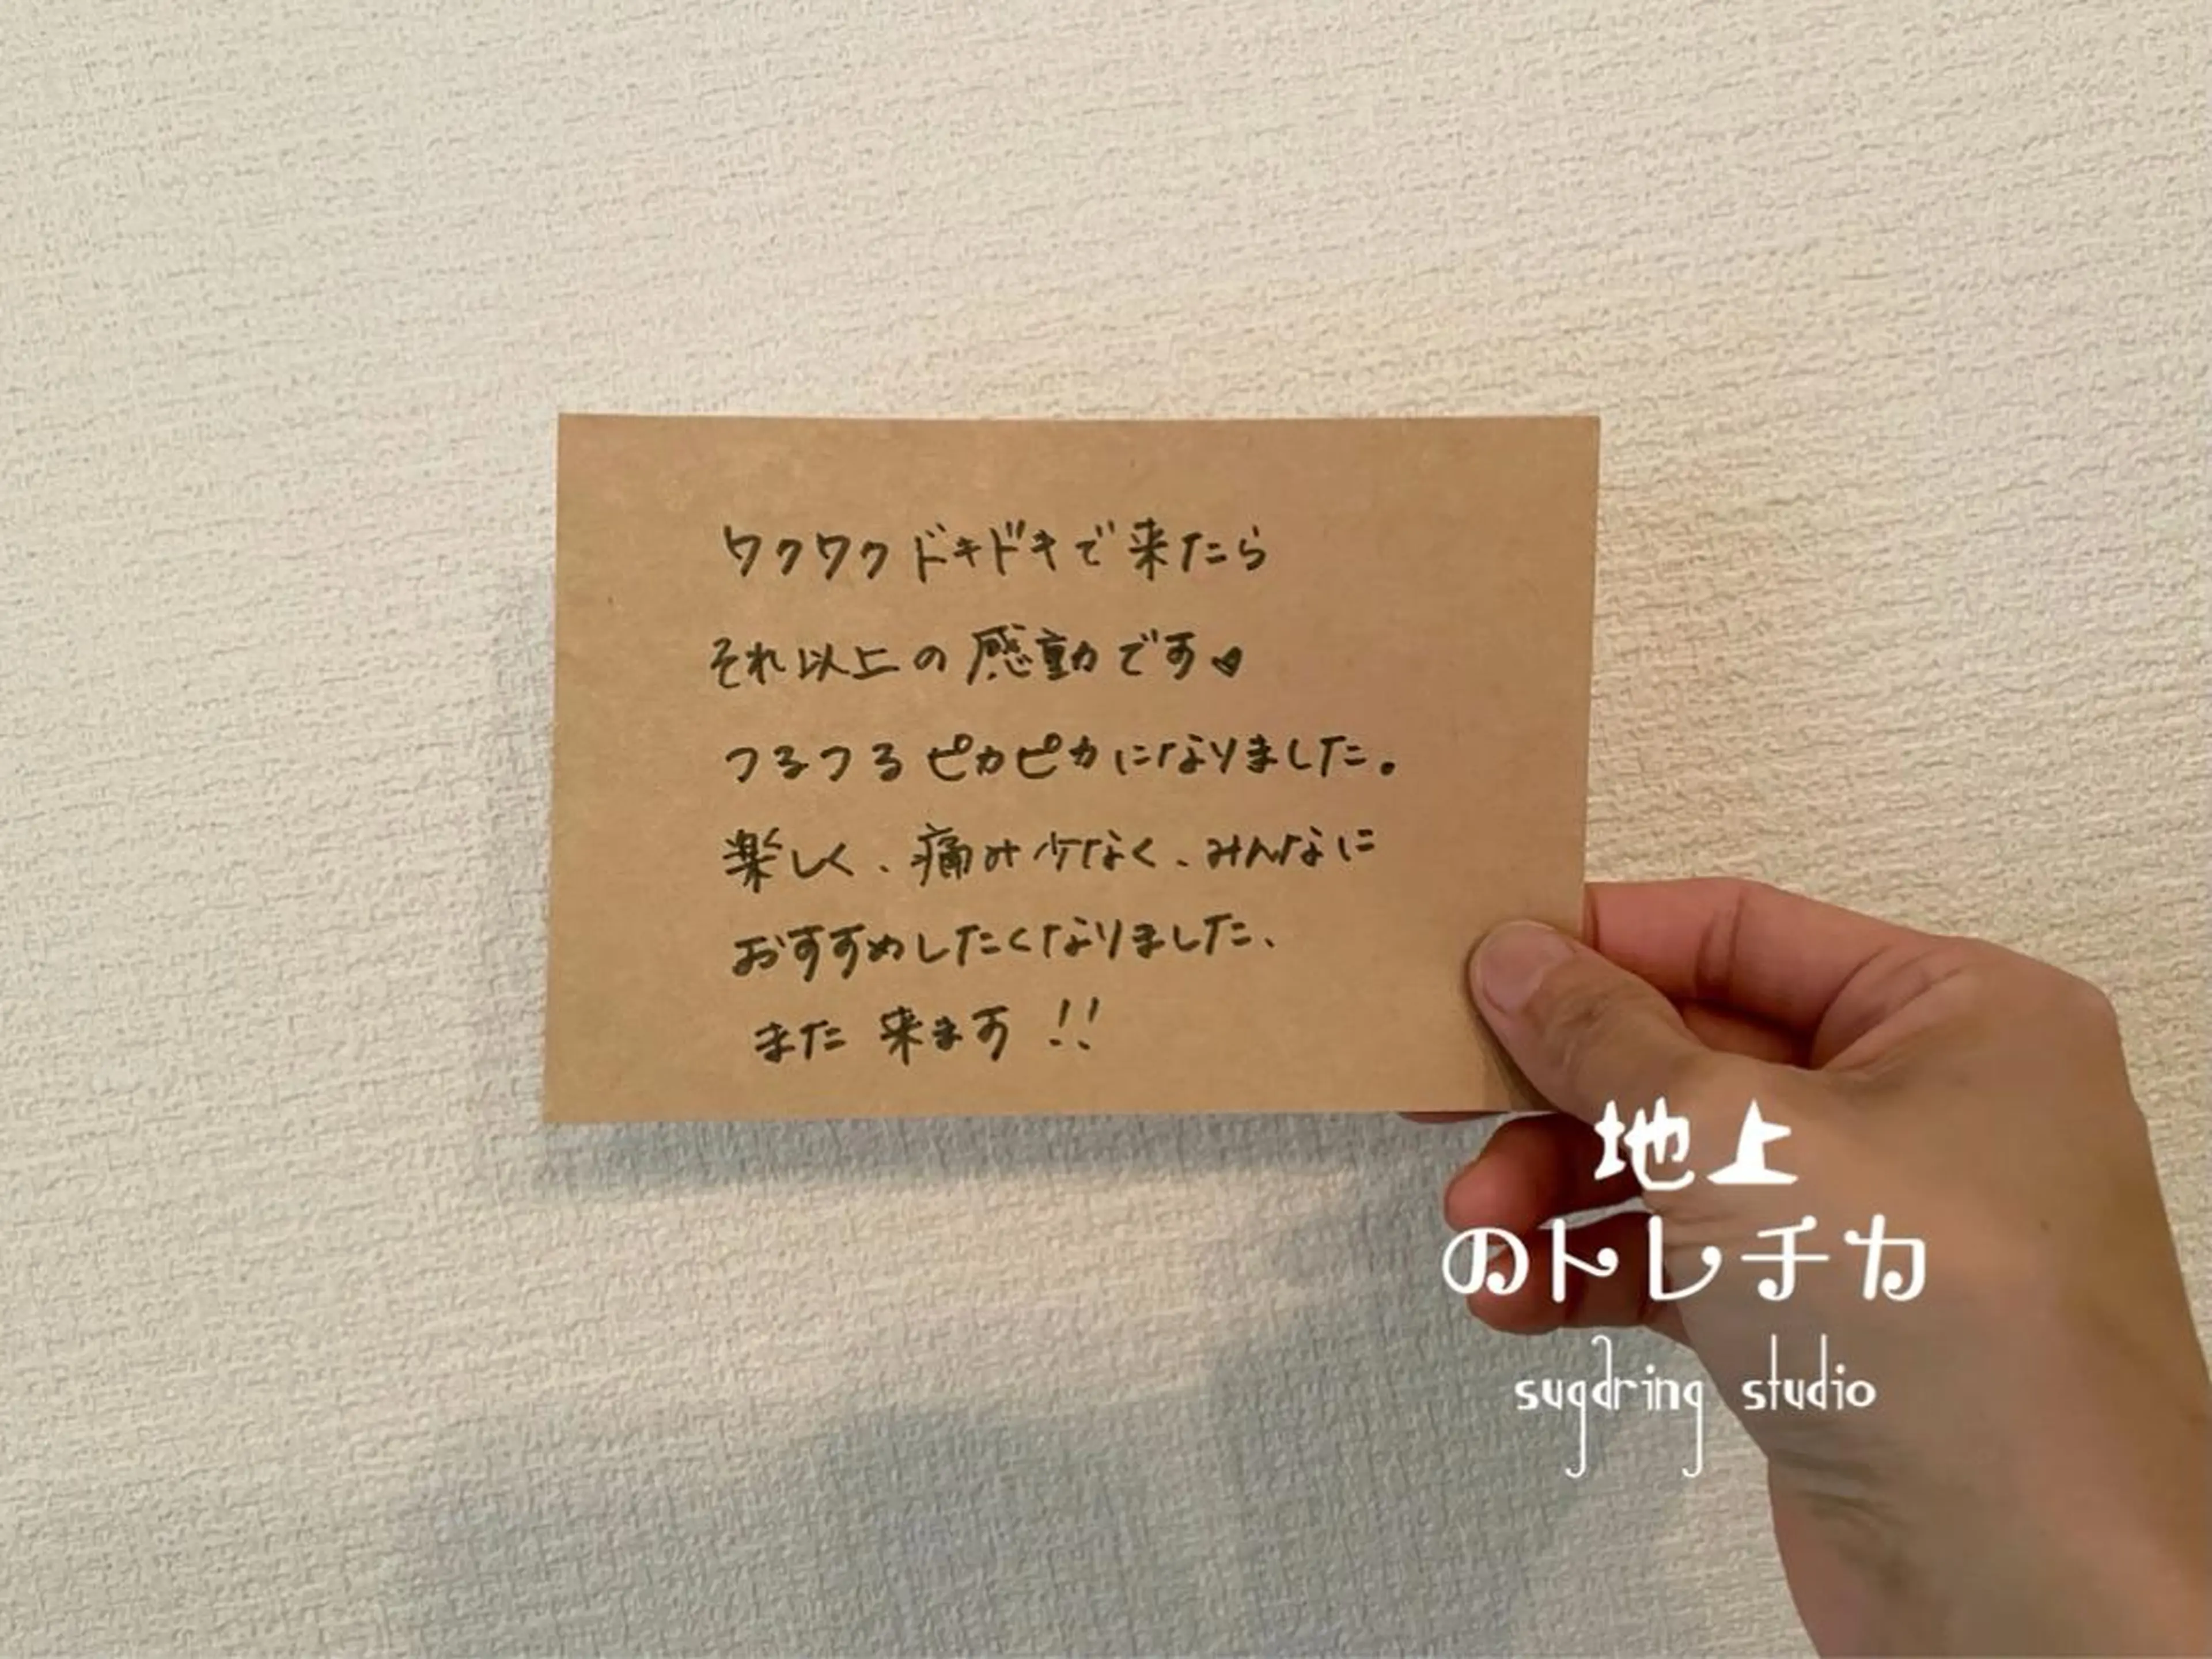 ワクワクドキドキで来たら
それ以上の感動です♥
つるつるピカピカになりました。
楽しく、痛み少なく、みんなに
おすすめしたくなりました、
また来ます!!
地上
のトレチカ
sugaring studio